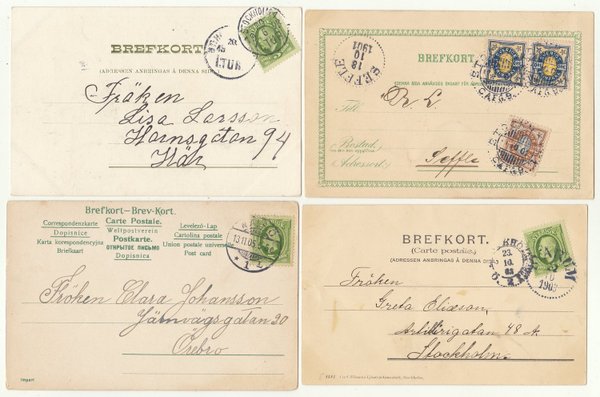 BREFKORT.
(ADRESSEN ANBRINGAS Å DENNA SIDA)
STOCKHOLM
LTUR
Fröken
Lisa Larsson
Hornsgatan 94
Här
BREFKORT.
GEFLE
18
10
1901
Till
Dr. L.
Bostad
Adressort
Gefle
Brefkort–Brev-Kort.
Correspondenzkarte
Dopisnice
Karta korespondencyjna
Briefkaart
Carte Postale.
Weltpostverein
Postkarte.
ОТКРЫТОЕ ПИСЬМО
Dopisnica
Levelező-Lap
Cartolina postale
Union postale universelle
Post card
13.11.05
Fröken Clara Johansson
Järnvägsgatan 30
Örebro
Import
BREFKORT.
(Carte postale.)
(ADRESSEN ANBRINGAS Å DENNA SIDA)
23
10
03
1903
Fröken
Greta
Artillerigatan 48 A
Stockholm.